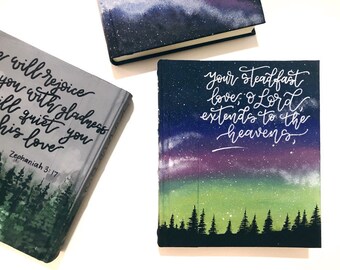 e will rejoice
you with gladness
ll quiet you
his love
Zephaniah 3:17
your steadfast
love, O Lord,
extends to the
heavens,